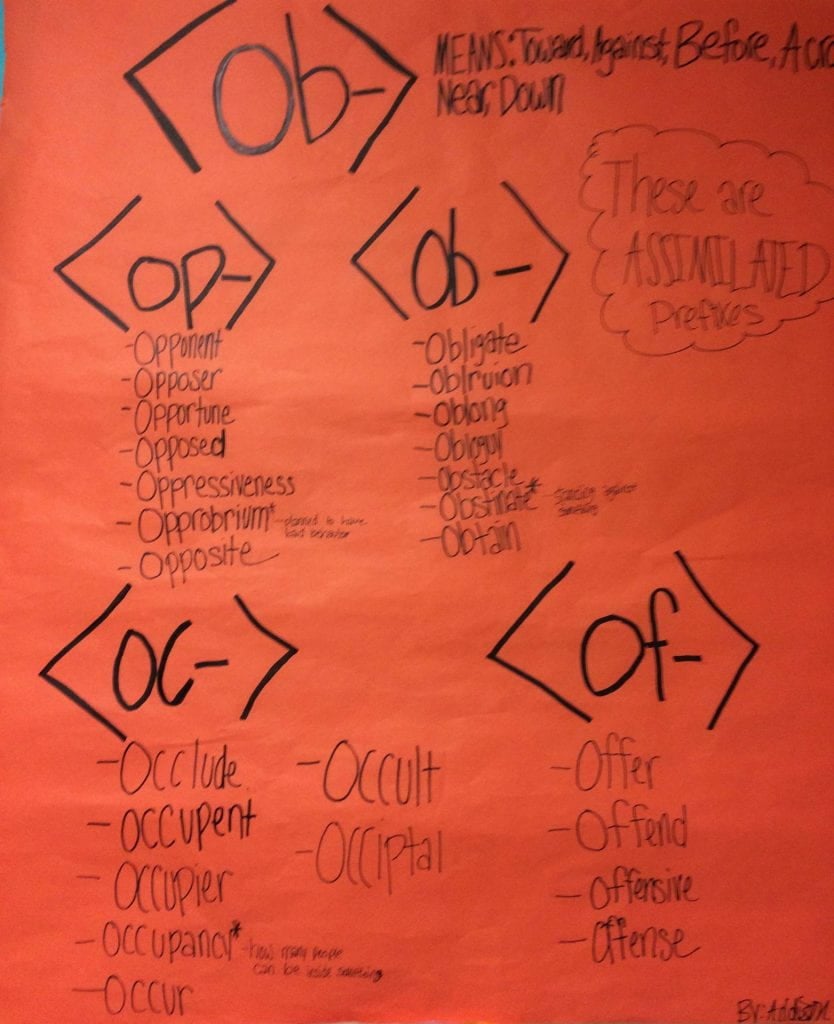 <Ob->
MEANS: Toward, Against, Before, Acro
Near, Down
These are
ASSIMILATED
Prefixes
<op->
-Opponent
-Opposer
-Opportune
-Opposed
-Oppressiveness
-Opprobrium* -planned to have
bad behavior
-Opposite
<Ob->
-Obligate
-Oblong
-Obstacle
-Obstinate* - against
something
-Obtain
<oc->
-Occlude
-Occupent
-Occupier
-Occupancy* -how many people
can be inside something
-Occur
-Occult
-Occiptal
<Of->
-Offer
-Offend
-Offensive
-Offense
By: